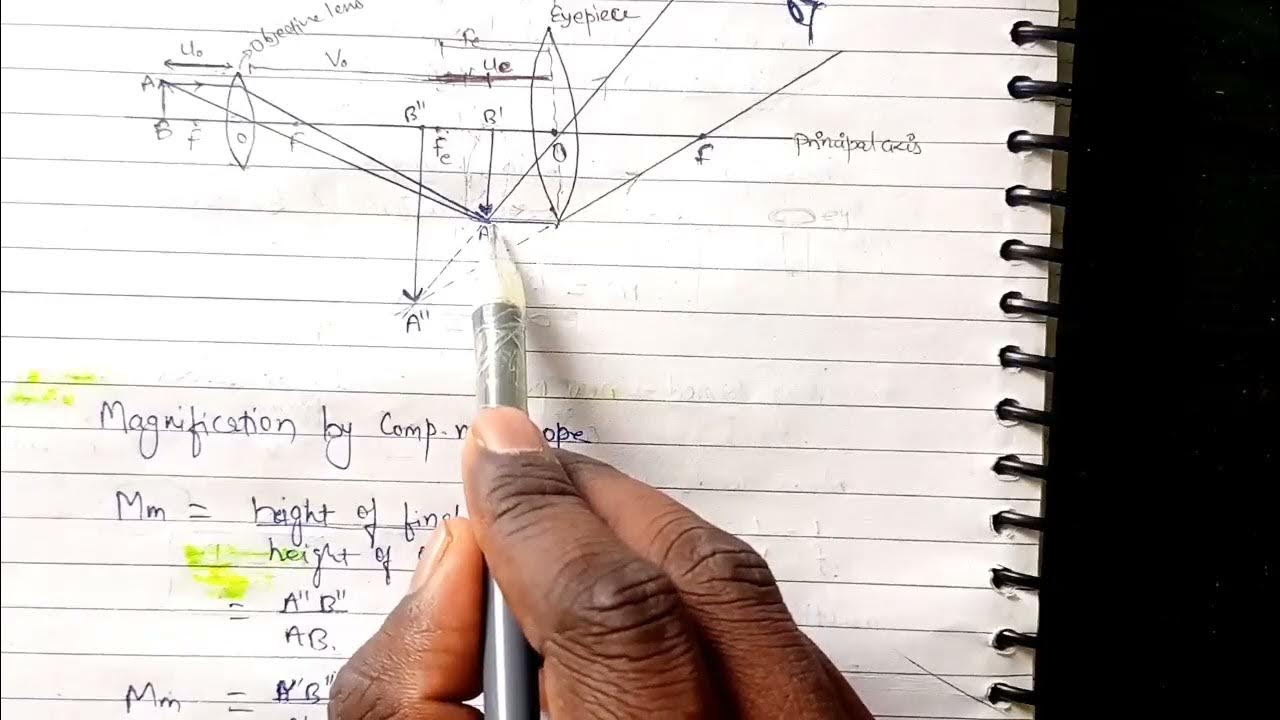 Objective lens
Eyepiece
fe
u₀
V₀
ue
A
B
f
O
f
B"
fe
B'
O
f
principal axis
A
A"
Magnification by Comp. ope
Mm = height of final
height of
= A"B"
AB.
Mm = A"B"